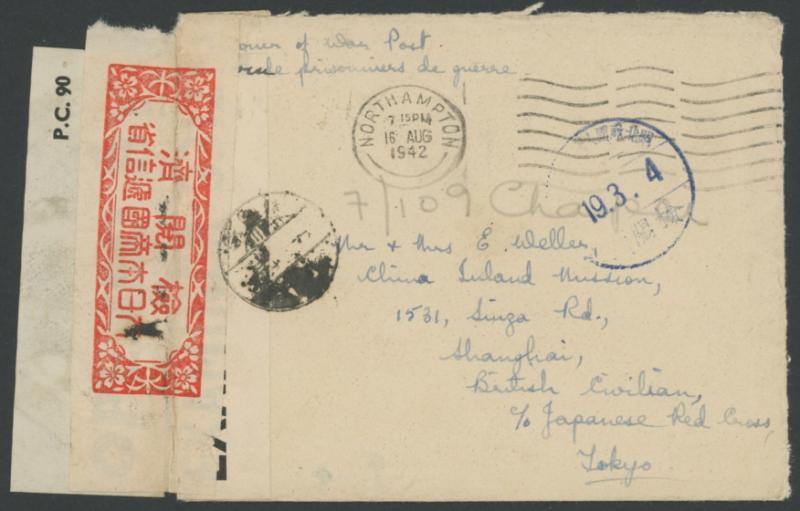 P.C. 90
oner of War Post.
de prisonniers de guerre
NORTHAMPTON
7 15PM
16 AUG
1942
19.3.4
檢閱濟
日本帝國遞信省
7/109
Mr & Mrs E. Weller,
China Inland Mission,
1531, Sinza Rd.,
Shanghai,
British Civilian,
c/o Japanese Red Cross,
Tokyo.